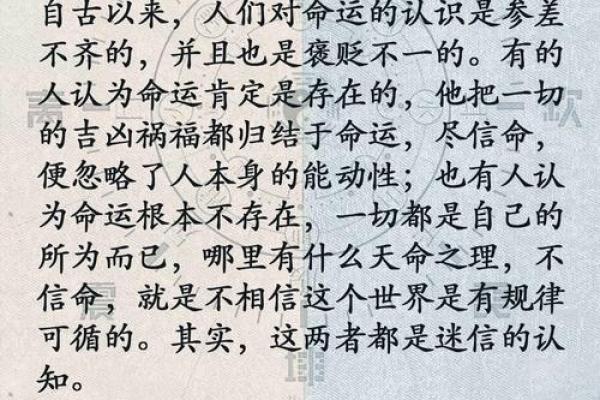 自古以来，人们对命运的认识是参差
不齐的，并且也是褒贬不一的。有的
人认为命运肯定是存在的，他把一切
的吉凶祸福都归结于命运，尽信命，
便忽略了人本身的能动性；也有人认
为命运根本不存在，一切都是自己的
所为而已，哪里有什么天命之理，不
信命，就是不相信这个世界是有规律
可循的。其实，这两者都是迷信的认
知。
离
坎
震